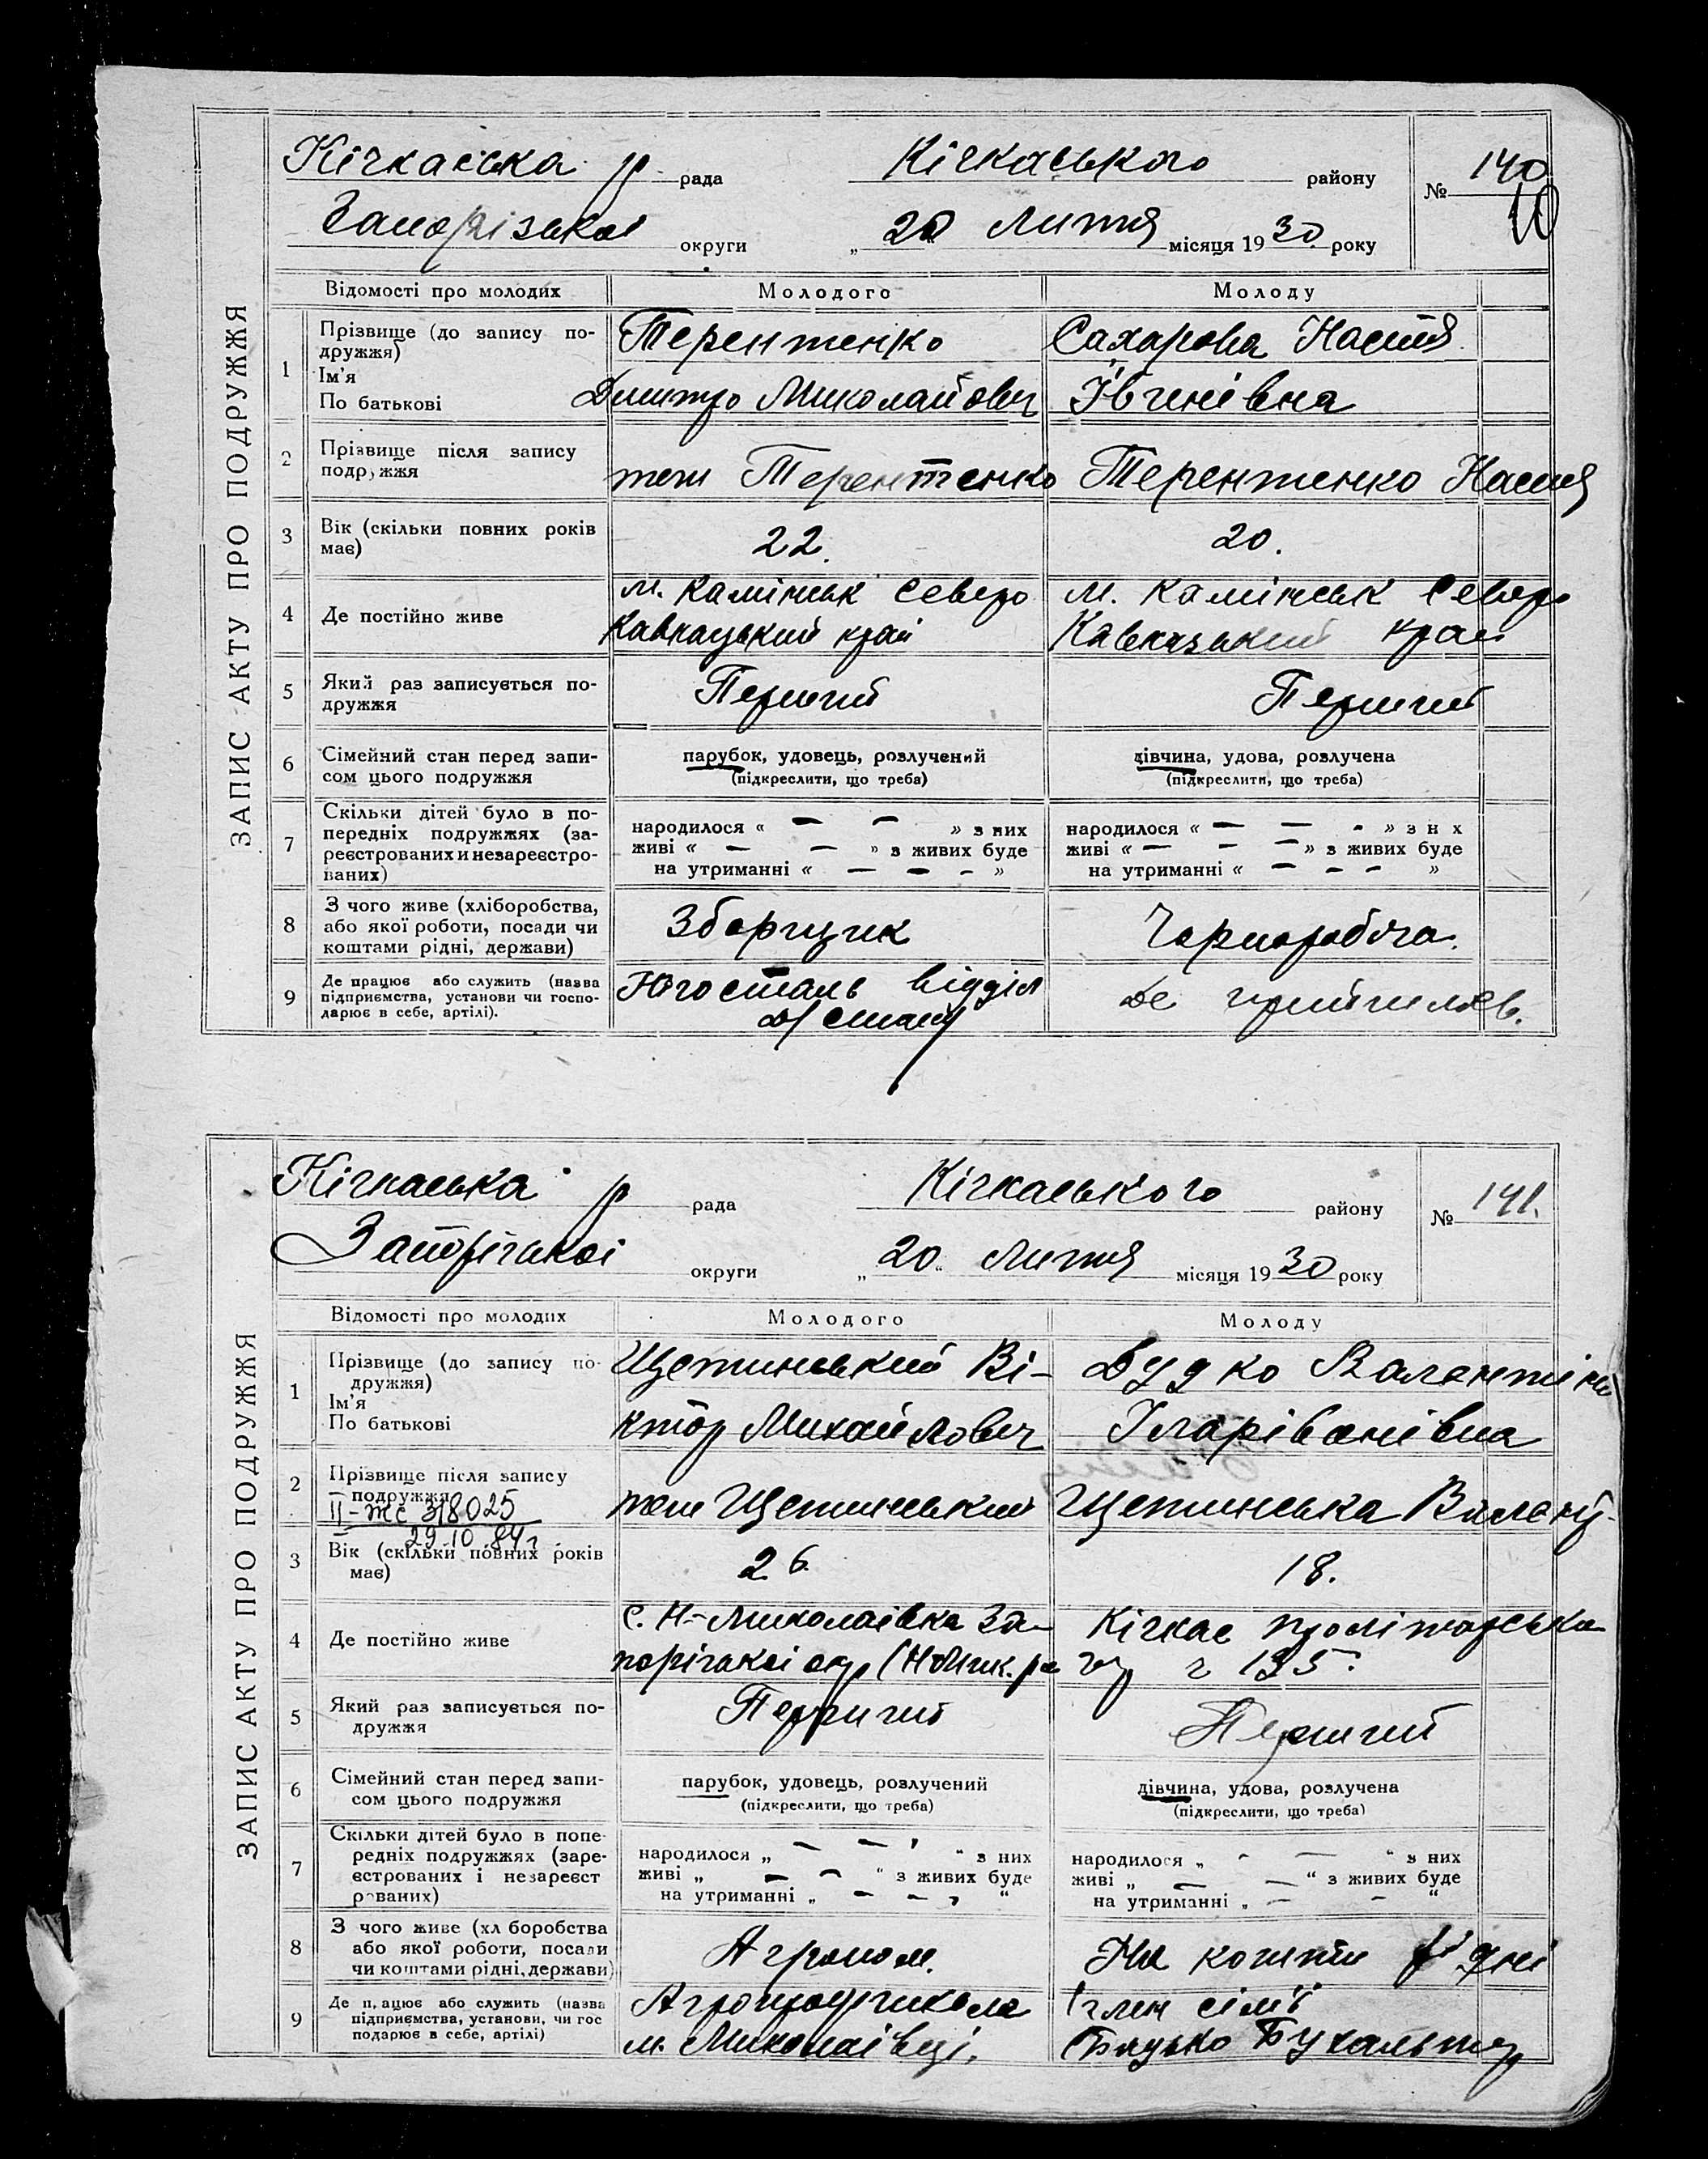 ЗАПИС АКТУ ПРО ПОДРУЖЖЯ
Кічкаська р. рада Кічкаського району № 140
10
Запорізької округи „20 Лютня місяця 1930 року
Відомості про молодих Молодого Молоду
1 Прізвище (до запису подружжя) Терентенко Сахарова Настя
Ім'я
По батькові Дмитро Миколайович Івгенівна
2 Прізвище після запису подружжя теж Терентенко Терентенко Настя
3 Вік (скільки повних років має) 22. 20.
4 Де постійно живе м. Камінськ Северо м. Камінськ Северо
Кавкаський край Кавказький край
5 Який раз записується подружжя Перший Перший
6 Сімейний стан перед записом цього подружжя парубок, удовець, розлучений дівчина, удова, розлучена
(підкреслити, що треба) (підкреслити, що треба)
7 Скільки дітей було в попередніх подружжях (зареєстрованих и незареєстрованих) народилося « — — » з них народилося « — — - » з н х
живі « — — » з живих буде живі « — - — » з живих буде
на утриманні « — — - » на утриманні « — - - »
8 З чого живе (хліборобства, або якої роботи, посади чи коштами рідні, держави) Зборщик Чорноробоча.
9 Де працює або служить (назва підприємства, установи чи господарює в себе, артілі). Югосталь відділ де
ЗАПИС АКТУ ПРО ПОДРУЖЖЯ
Кічкаська р рада Кічкаського району № 141.
Запорізької округи „20 Лютня місяця 1930 року
Відомості про молодих Молодого Молоду
1 Прізвище (до запису подружжя) Щетинський Ві- Дудко Валентіна
Ім'я
По батькові ктор Михайлович Іларіванівна
2 Прізвище після запису подружжя теж Щетинський Щетинська Валент-
ІІ-ЖС 318025
29.10.84г
3 Вік (скільки повних років має) 26. 18.
4 Де постійно живе С. Н-Миколаівка За- Кічкас Пролітарська
порізькоі окр (Н Мик. ра ву ч 135.
5 Який раз записується подружжя Перший Перший
6 Сімейний стан перед записом цього подружжя парубок, удовець, розлучений дівчина, удова, розлучена
(підкреслити, що треба) (підкреслити, що треба)
7 Скільки дітей було в попередніх подружжях (зареєстрованих і незареєст рованих) народилося „ — — “ з них народилося „ - — “ з них
живі „ — — “ з живих буде живі „ — — “ з живих буде
на утриманні „ — - “ на утриманні „ — - “
8 З чого живе (хл боробства або якої роботи, посади чи коштами рідні, держави) Агроном. На кошти рідні
9 Де працює або служить (назва підприємства, установи, чи гос подарює в себе, артілі) Агропрофшкола член сімї
м. Миколаівці. Батько Бухальтер